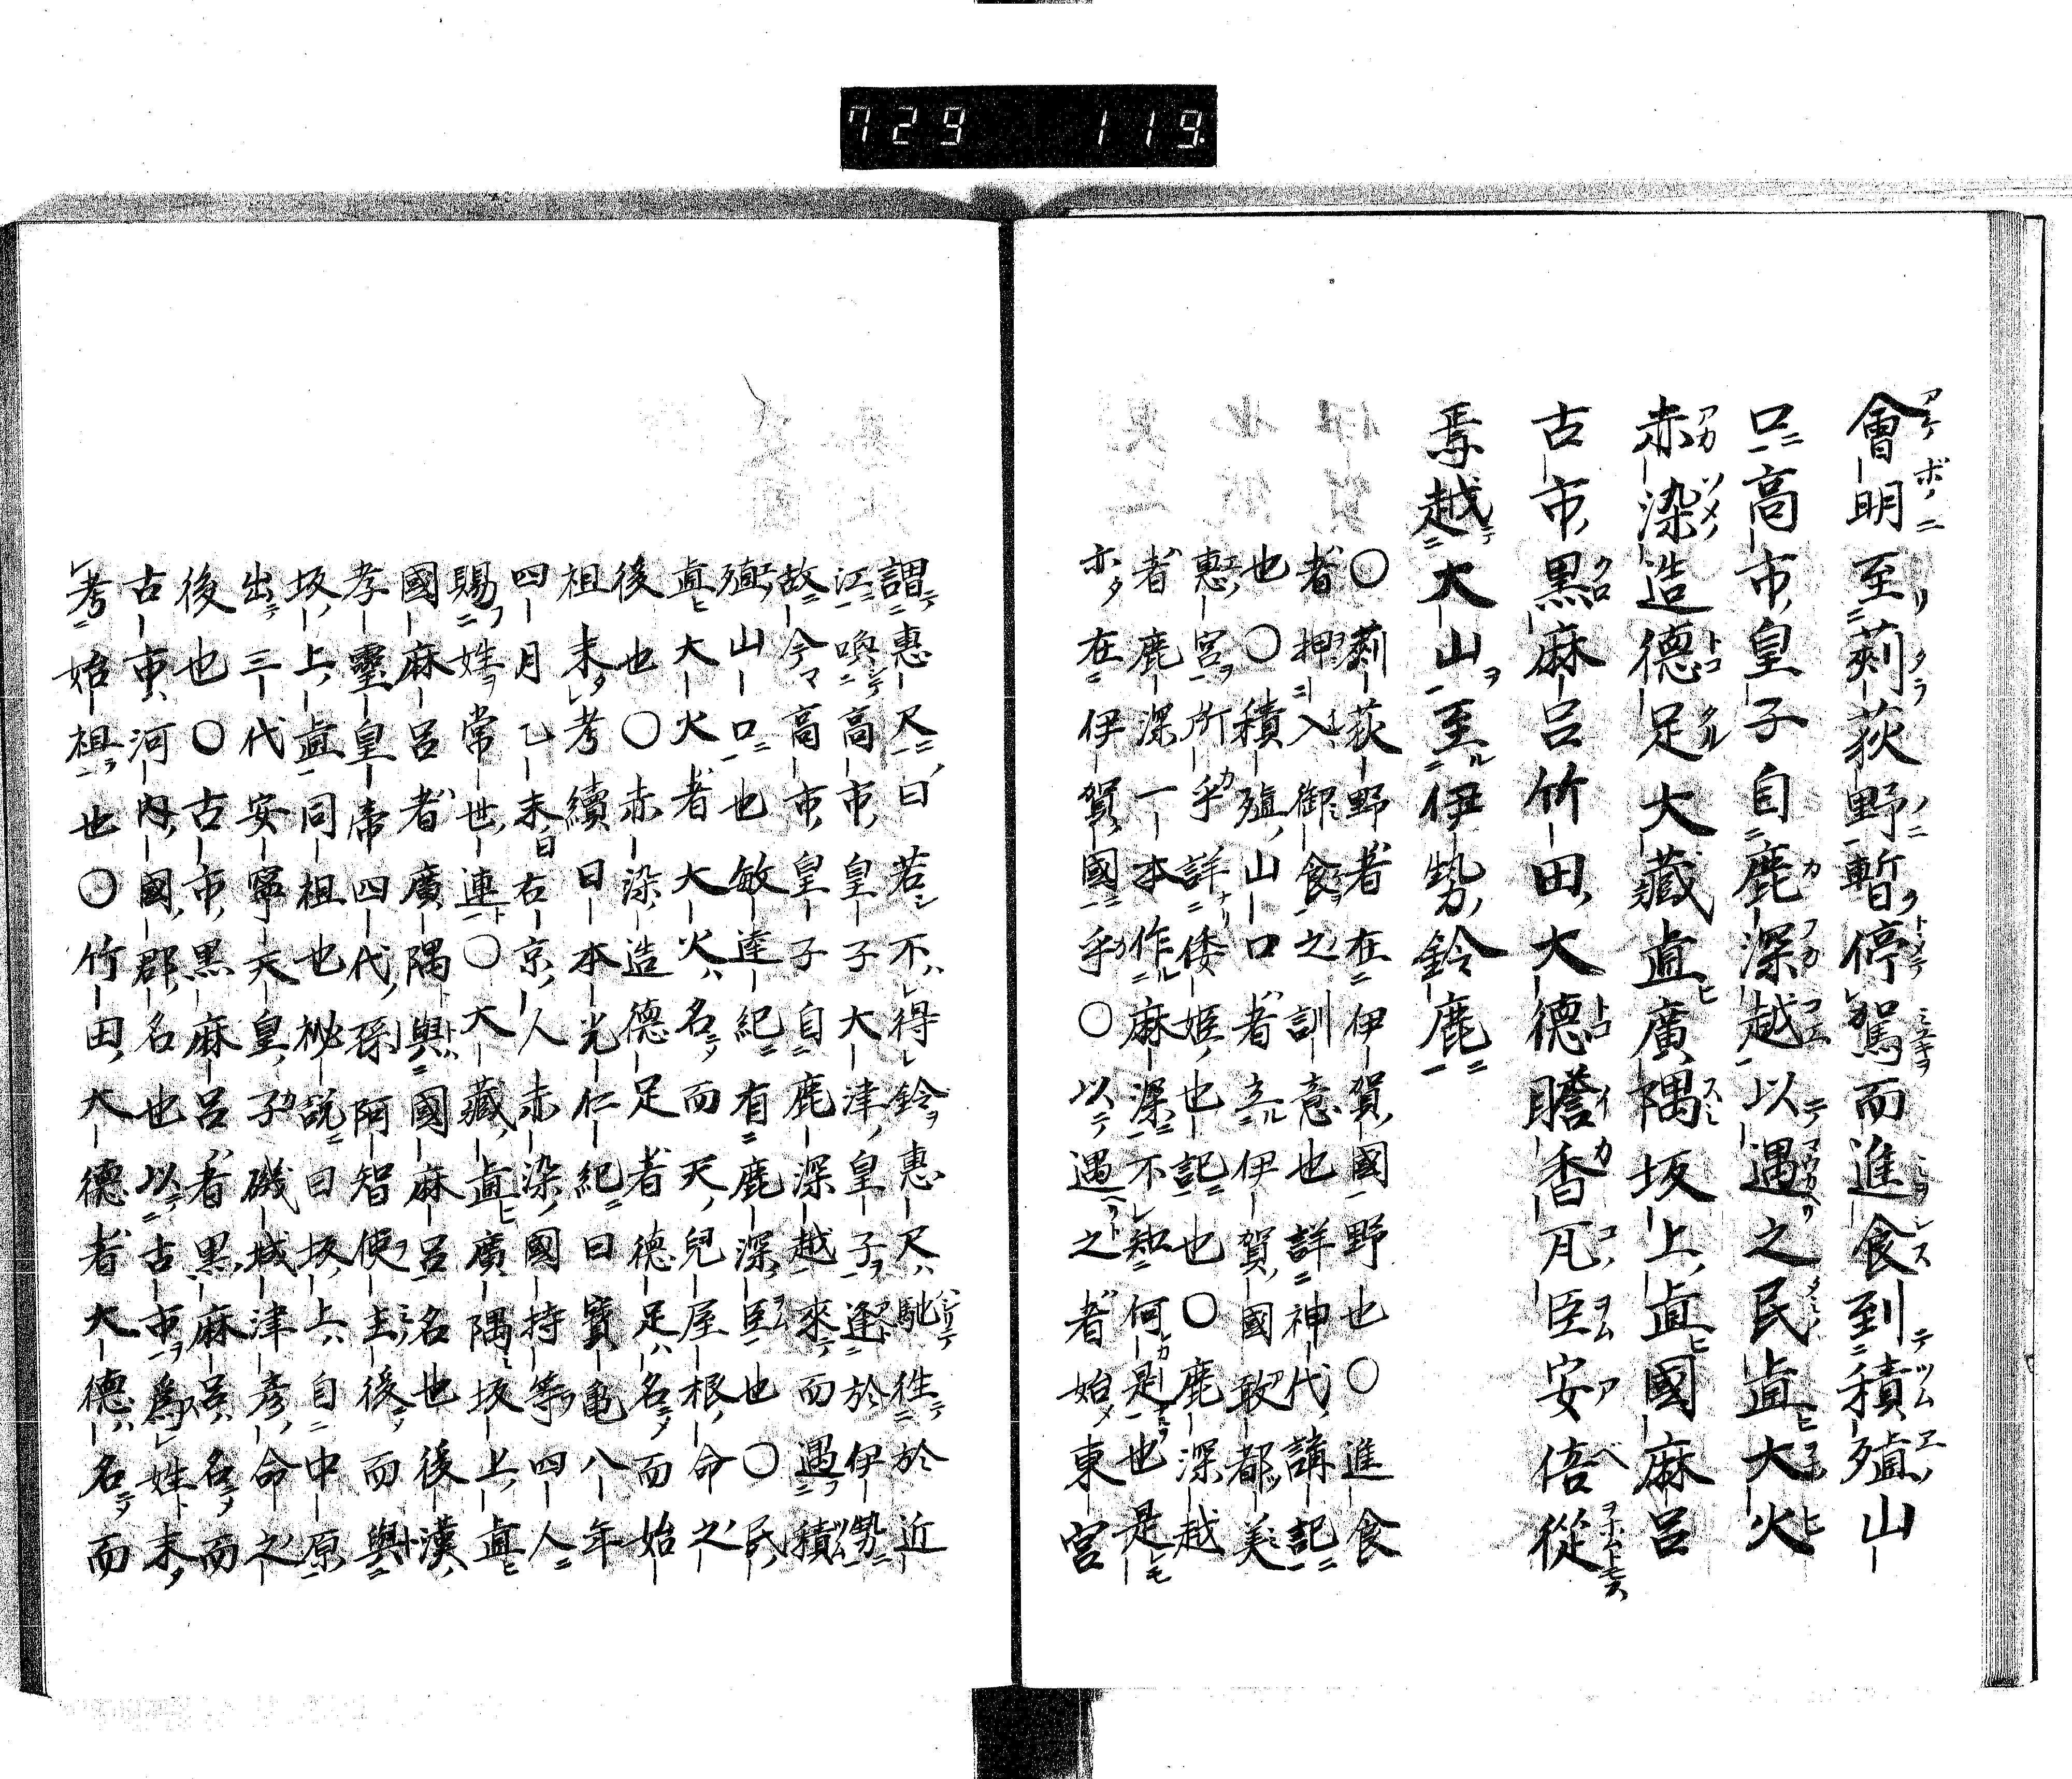 729 119
會明至莿萩野暫停駕而進食到積殖山
口高市皇子自鹿深越以遇之民直大火
赤染造德足大藏直廣隅坂上直國麻呂
古市黑麻呂竹田大德膽香瓦臣安倍從
焉越大山至伊勢鈴鹿
〇莿萩野者在伊賀國野也〇進食
者押入御食之訓意也詳神代講記
也〇積殖山口者立伊賀國敢都美
惠宮所乎詳倭姬也記也〇鹿深越
者鹿深一本作麻深不知何是也是
亦在伊賀國乎〇以遇之者始東宮
謂惠尺曰若不得鈴惠尺馳徃於近
江喚高市皇子大津皇子逢於伊勢
故今高市皇子自鹿深越來而遇積
殖山口也敏達紀有鹿深臣也〇民
直大火者大火名而天兒屋根命之
後也〇赤染造德足者德足名而始
祖未考續日本光仁紀曰寶龜八年
四月乙未日右京人赤染國持等四人
賜姓常世連〇大藏直廣隅坂上直
國麻呂者廣隅與國麻呂名也後漢
孝靈皇帝四代孫阿智使主後而與
坂上直同祖也秘說曰坂上自中原
出三代安寧天皇子磯城津彥命之
後也〇古市黑麻呂者黑麻呂名而
古市河內國郡名也以古市爲姓未
考始祖也〇竹田大德者大德名而